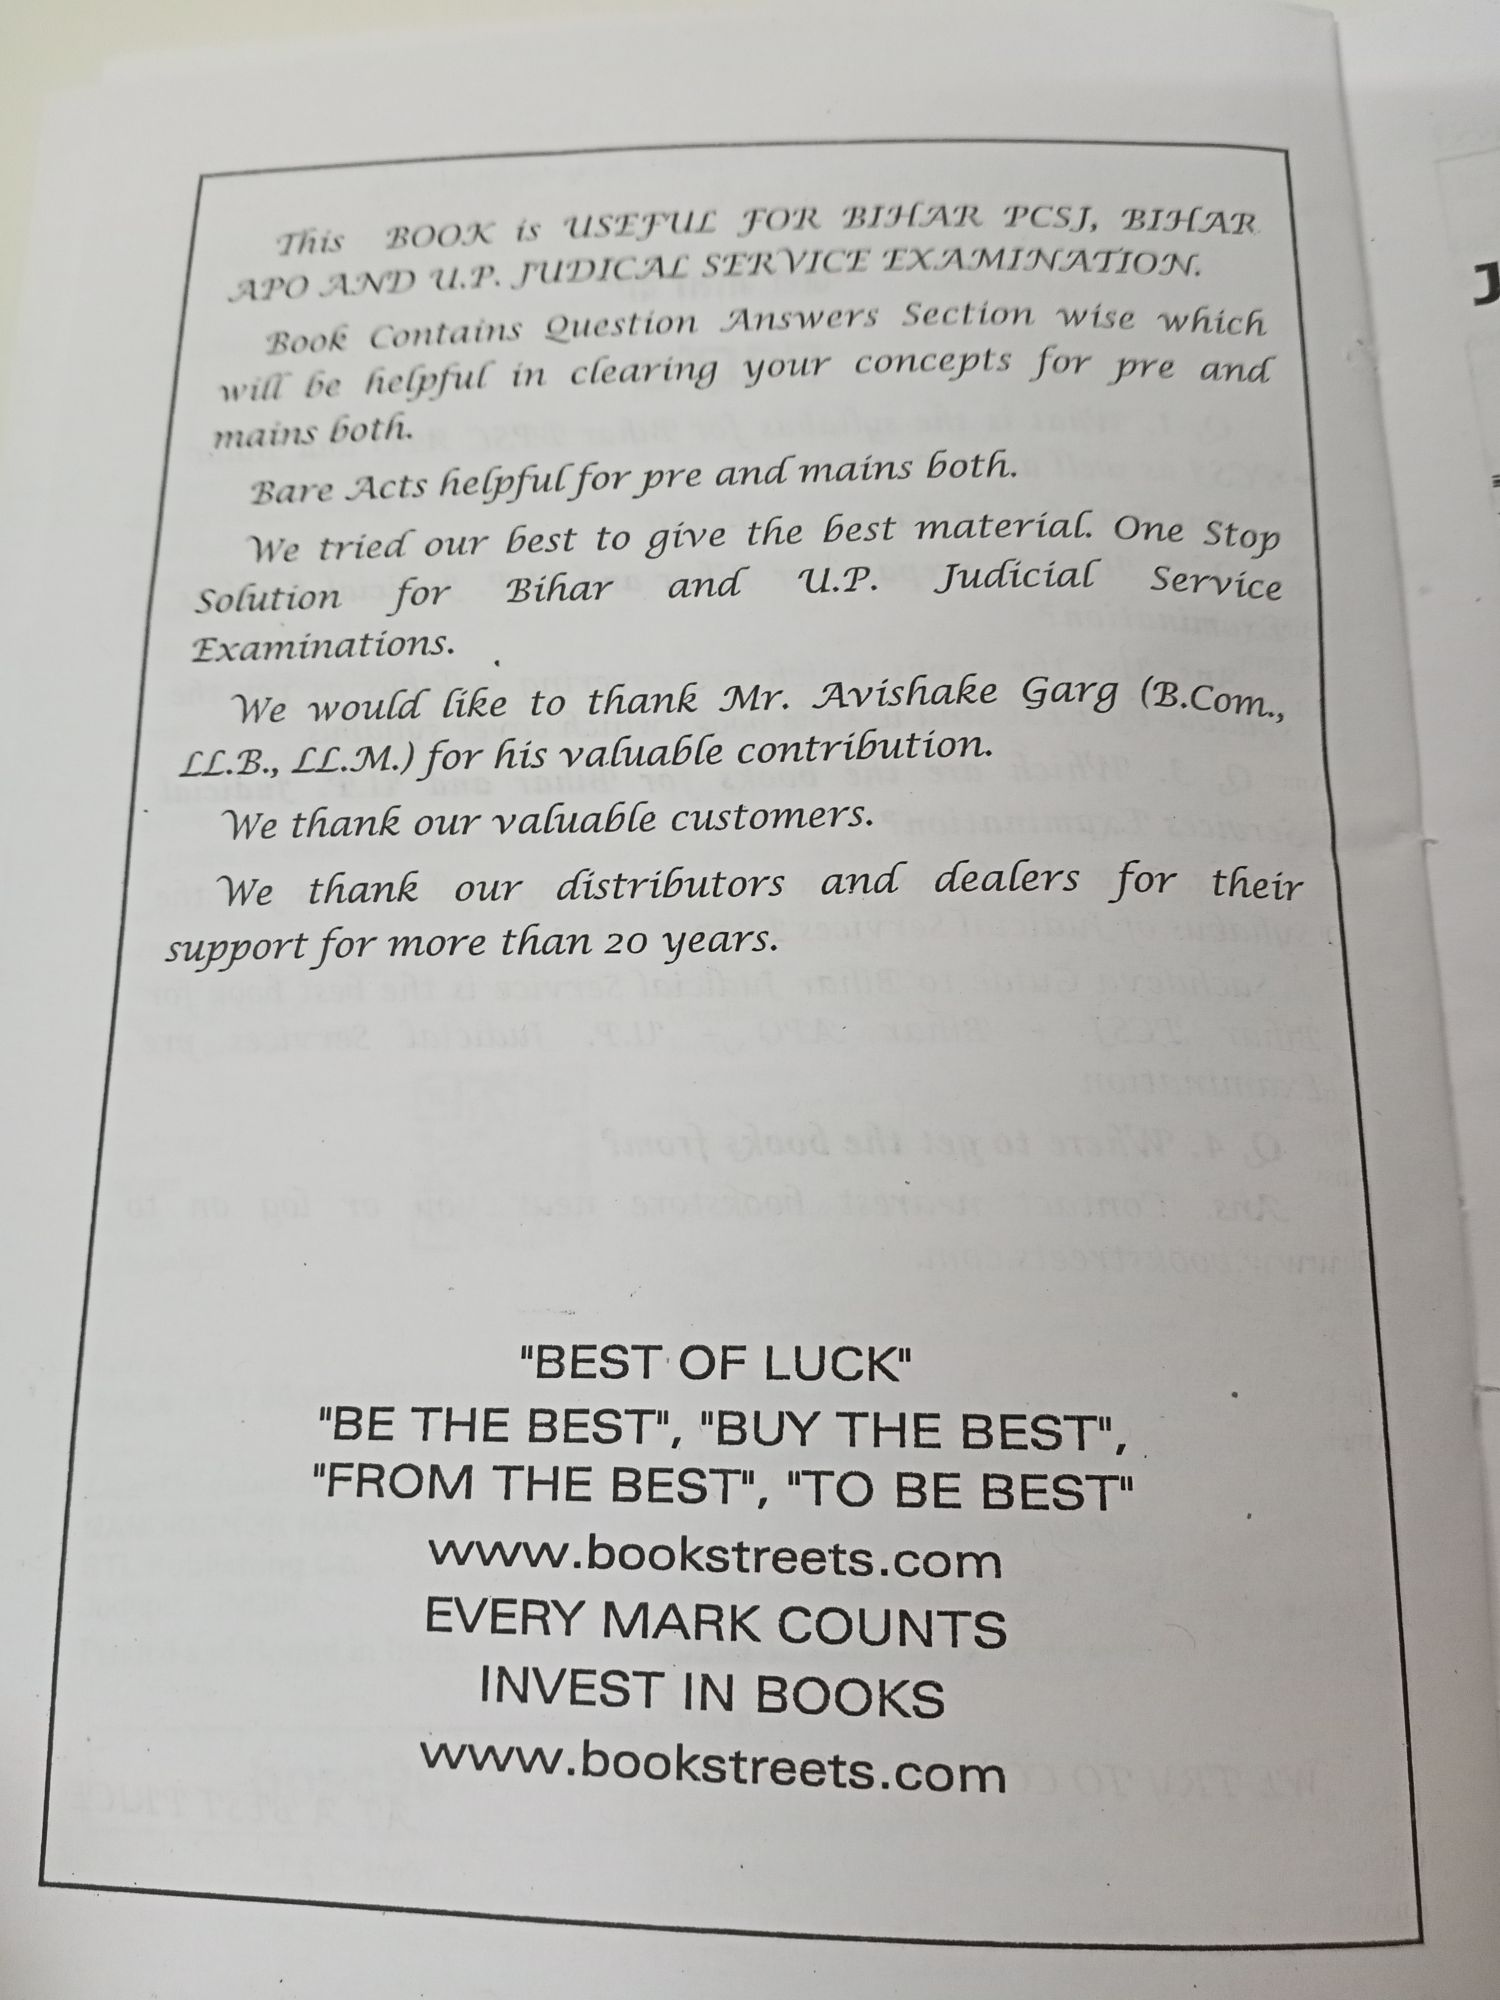 This BOOK is USEFUL FOR BIHAR PCSJ, BIHAR
APO AND U.P. JUDICAL SERVICE EXAMINATION.
Book Contains Question Answers Section wise which
will be helpful in clearing your concepts for pre and
mains both.
Bare Acts helpful for pre and mains both.
We tried our best to give the best material. One Stop
Solution for Bihar and U.P. Judicial Service
Examinations.
We would like to thank Mr. Avishake Garg (B.Com.,
LL.B., LL.M.) for his valuable contribution.
We thank our valuable customers.
We thank our distributors and dealers for their
support for more than 20 years.
"BEST OF LUCK"
"BE THE BEST", "BUY THE BEST",
"FROM THE BEST", "TO BE BEST"
www.bookstreets.com
EVERY MARK COUNTS
INVEST IN BOOKS
www.bookstreets.com